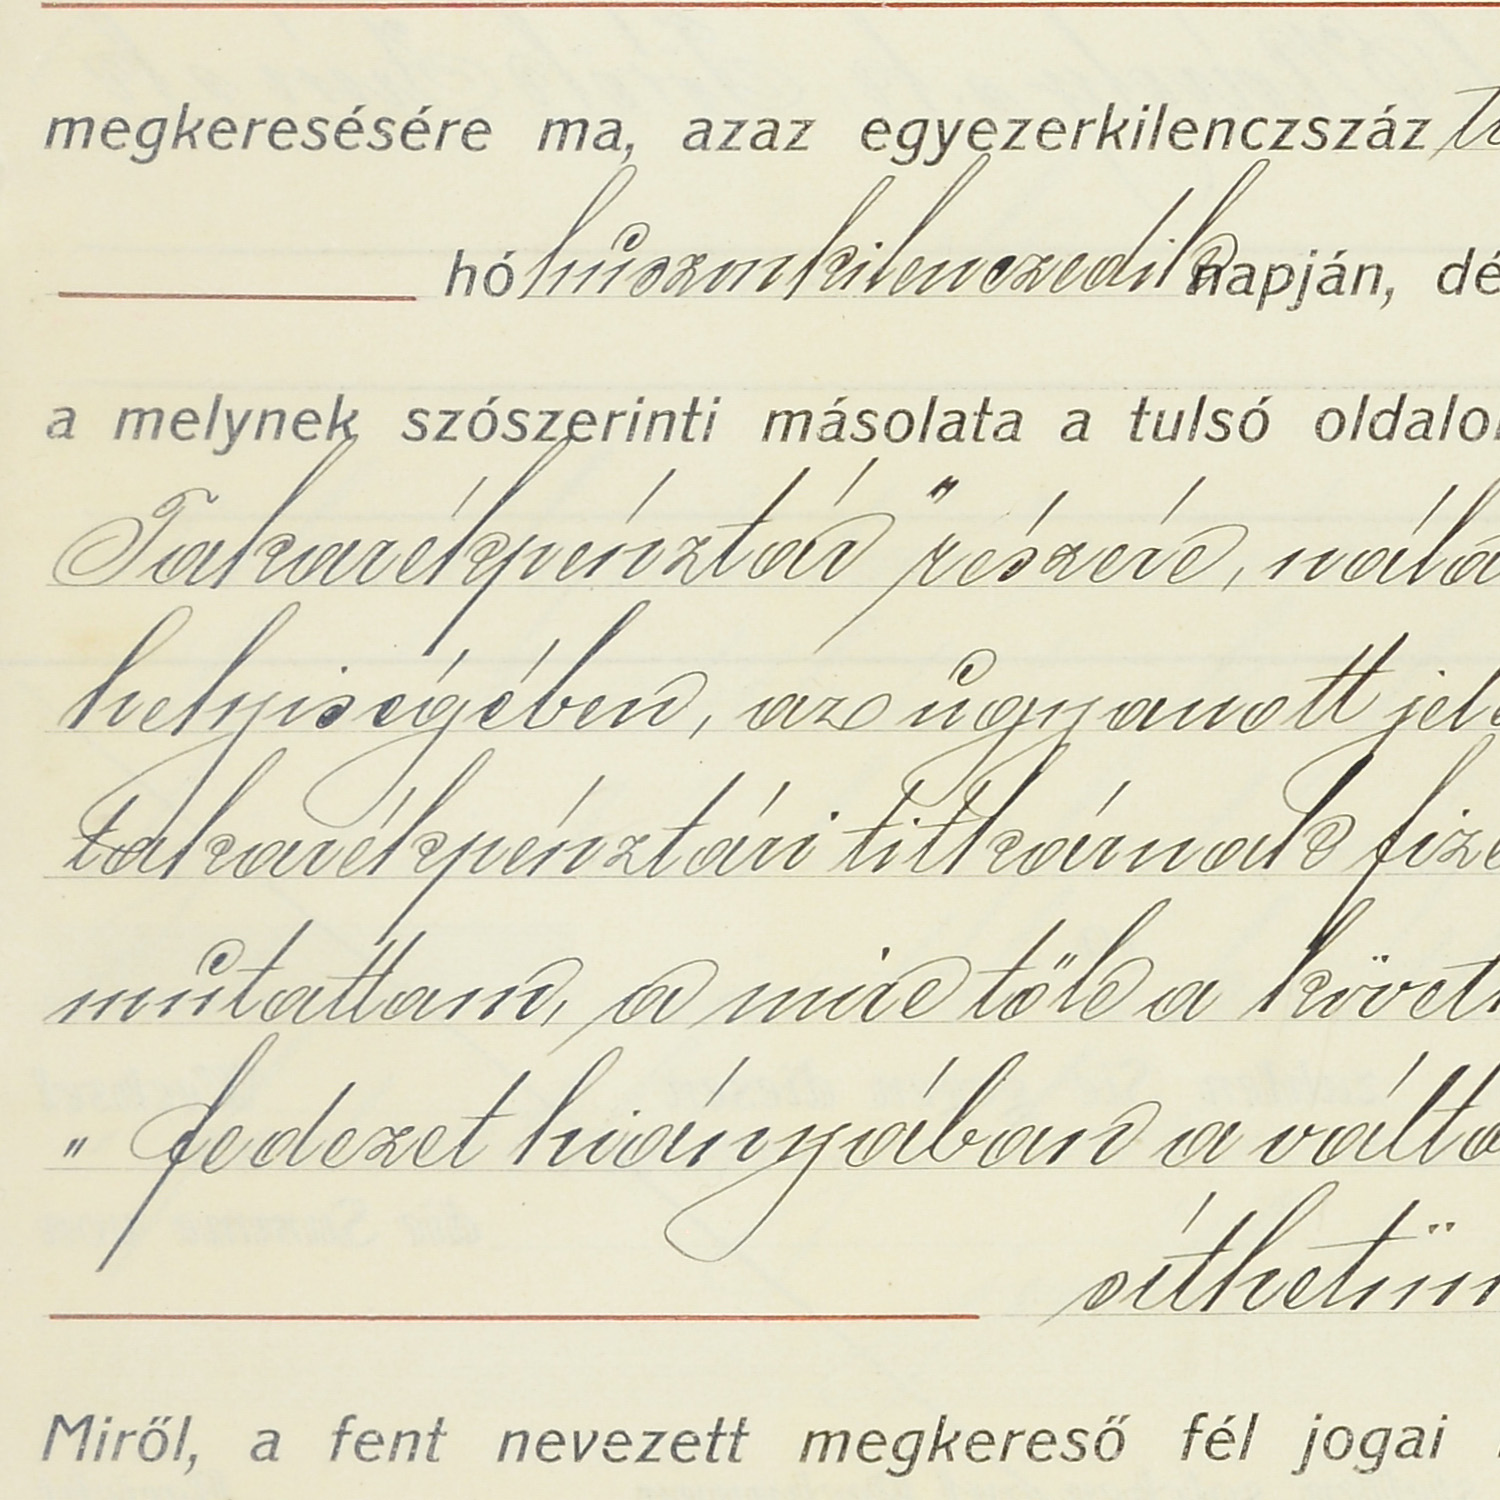 megkeresésére ma, azaz egyezerkilenczszáz
hó huszonkilenczedik napján, dé
a melynek szószerinti másolata a tulsó oldalo
Takarékpénztár" részére, nála
helyiségében, az ugyanott jele
takarékpénztári titkárnak fize
mutattam, a mire tőle a követk
" fedezet hiányában aválto
síthetün
Miről, a fent nevezett megkereső fél jogai